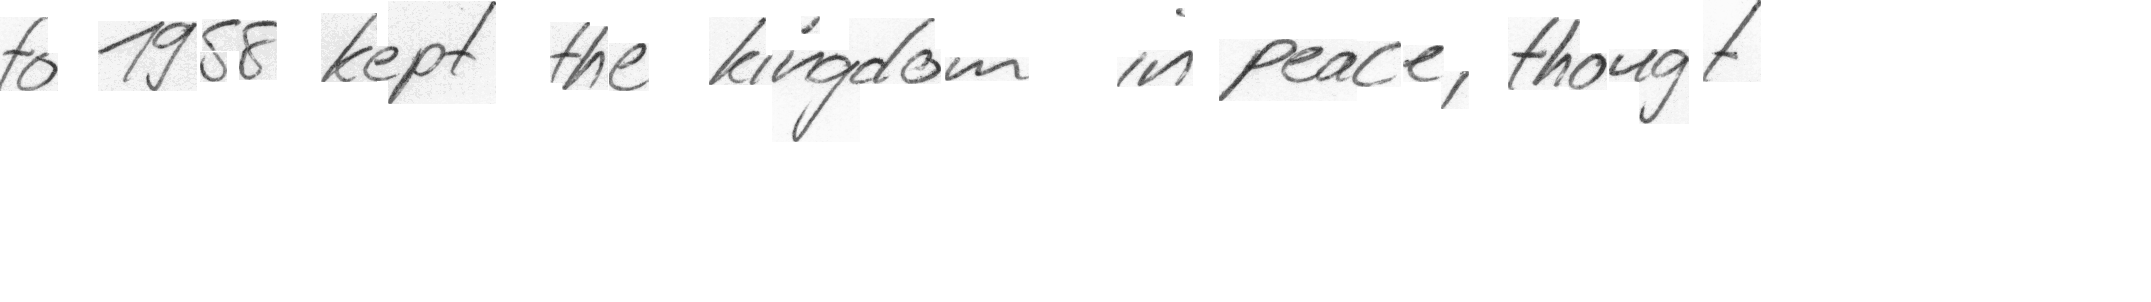 to 1958 kept the kingdom in peace, thougt